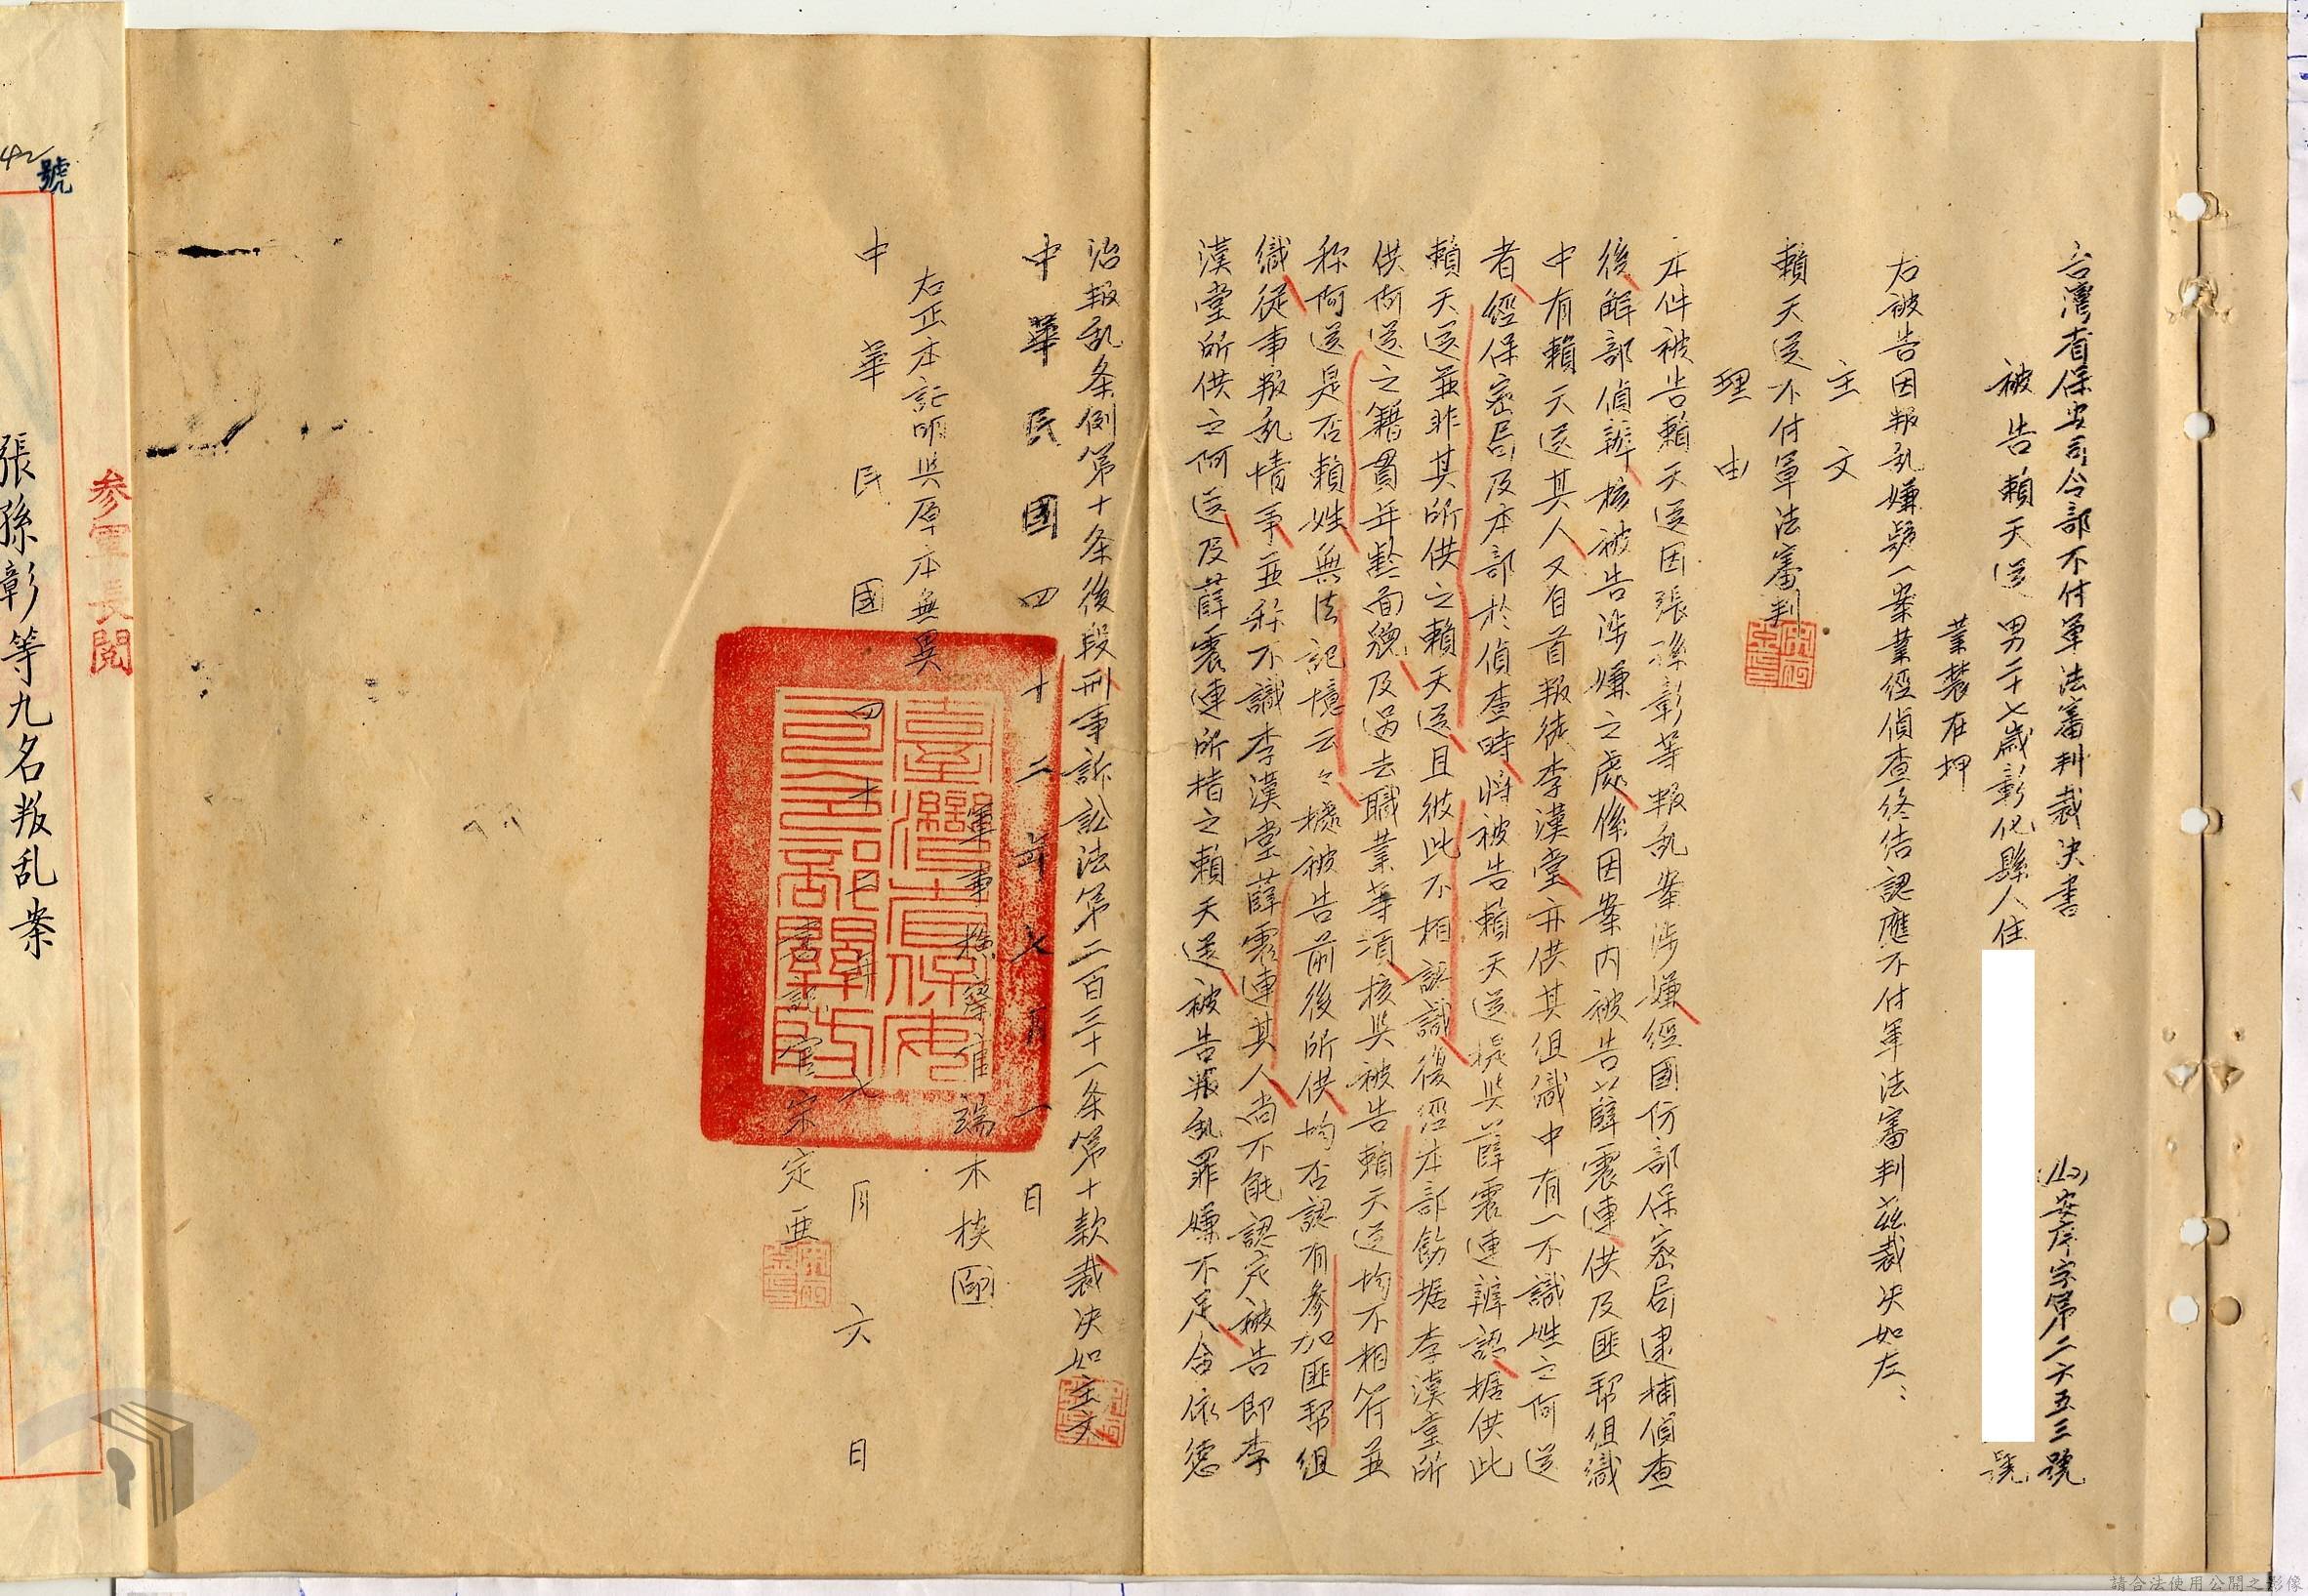 台灣省保安司令部不付軍法審判裁決書
(42)安序字第二六五三號
被告賴天送 男二十七歲彰化縣人住
號
業農在押
右被告因叛乱嫌疑一案業經偵查終结認應不付軍法審判茲裁决如左：
主文
賴天送不付軍法審判
理由
本件被告賴天送因張孫彰等叛乱案涉嫌經國仿部保密局逮捕偵查
後解部偵辦核被告涉嫌之處係因案内被告薛震連供及匪幫组織
中有賴天送其人又自首叛徒李漢堂亦供其组織中有一不識姓之阿送
者經保密局及本部於偵查時將被告賴天送提与薛震連辦認據供此
賴天送並非其所供之賴天送且彼此不相認識後經本部飭據李漢堂所
供阿送之籍貫年齡面貌及過去職業等項核与被告賴天送均不相符並
称阿送是否賴姓無法記憶云々據被告前後所供均否認有參加匪幫组
織從事叛乱情事並称不識李漢堂薛震連其人尚不能認定被告即李
漢堂所供之阿送及薛震連所指之賴天送被告叛乱罪嫌不足合依懲
治叛乱条例第十条後段刑事訴訟法第二百三十一条第十款裁决如主文
中華民國四十二年七月一日
軍事檢察官端木棪
右正本証明與原本無異
中華民國四十二年七月六日
書記官宗定亜
臺灣省保安司令部關防
參軍長閱
42號
張孫彰等九名叛乱案
請合法使用公開之影像